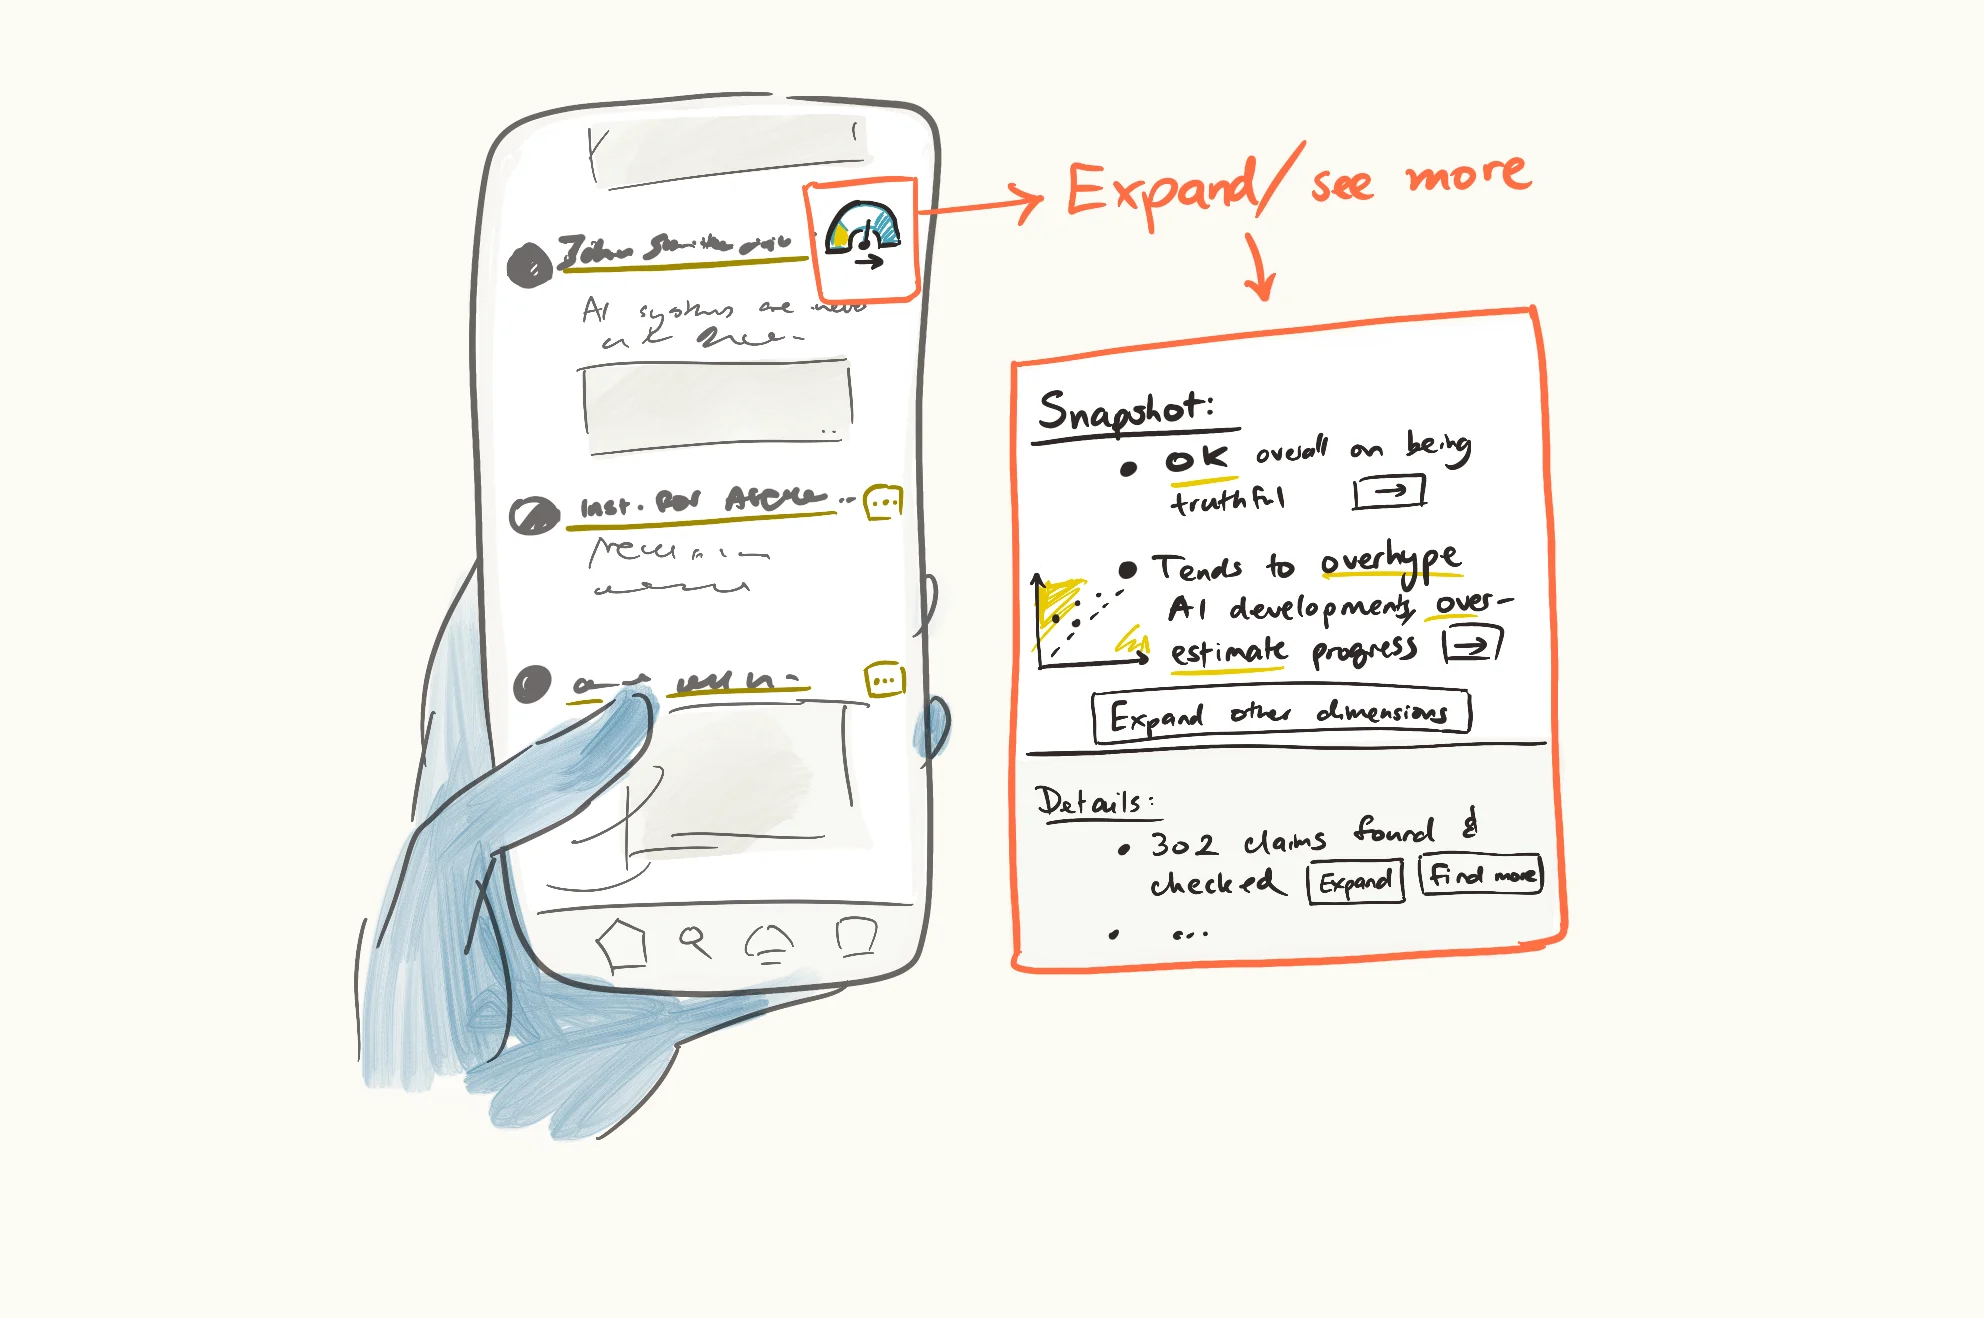 AI systems are
Inst. for
Expand/see more
Snapshot:
• OK overall on being
truthful →
• Tends to overhype
AI developments, over-
estimate progress →
Expand other dimensions
Details:
• 302 claims found &
checked Expand Find more
• ...